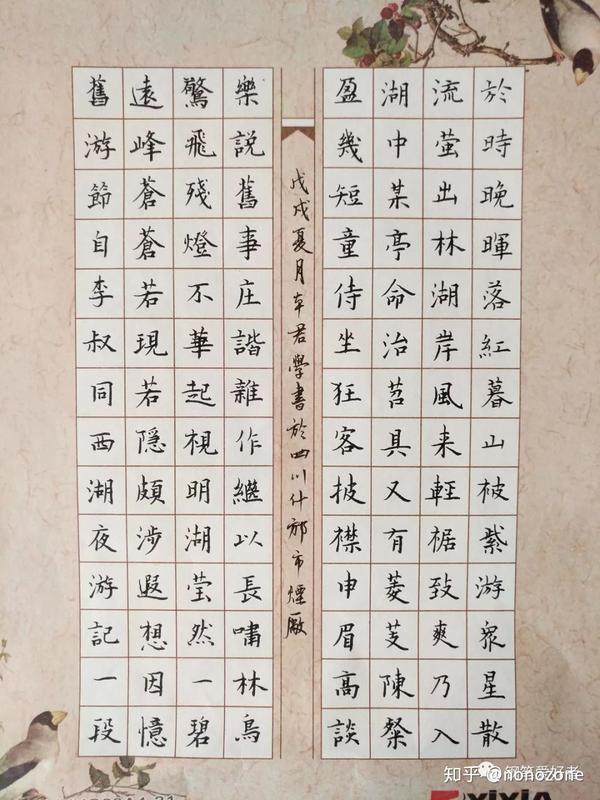 於時晚暉落紅暮山被紫游眾星散
流螢出林湖岸風来輕裾致爽乃入
湖中某亭命治茗具又有菱芡陳粲
盈幾短童侍坐狂客披襟申眉高談
樂說舊事庄諧雜作繼以長嘯林鳥
驚飛殘燈不華起視明湖瑩然一碧
遠峰蒼蒼若現若隱頗涉遐想因憶
舊游節自李叔同西湖夜游記一段
戊戌夏月君學書於四川什邡市煙廠
钢笔爱好者
知乎 @nonozone
XIXIA